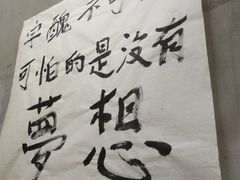 字醜不可
可怕的是沒有
夢想